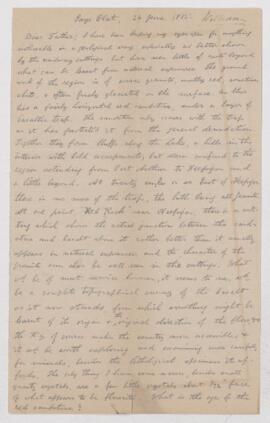 Rays Blot, 26 June 1882.
Dear Father; I have been keeping my eyes open for anything
noticeable in a geological way especially as better shown
by the railway cuttings but have seen little of note beyond
what can be learnt from natural exposures. The ground
work of the region is of granite, mostly red, sometimes
white, & often finely glaciated on the surface. On this
lies a fairly horizontal red sandstone, under a layer of
basaltic trap. The sandstone only occurs with the trap
as it has protected it from the general denudation
Together they form bluffs along the lake, & hills in the
interior with bold escarpments, but seem confined to the
region extending from Port Arthur to
a little beyond. At twenty miles or so East of
there is no more of the trap, the hills being all granite.
At one point, Red Rock near there is a cut-
ting which shows the actual junction between the sand-
stone and basalt above it rather better than it usually
appears in natural exposures and the character of the
granite can also be well seen in the cuttings. What
of be of much more a known, it seems to me, would
be a complete topographical survey of the basalt
as it now stands, from which something might be
learnt of the origin & original direction of the flow &
the Ry of course makes the country more accessible, &
it w'd be worth exploring and examining more carefully
for minerals, besides the lithological specimens it af-
fords. The only thing I have come across, besides small
quartz crystals, is a few little crystals about 1/16" face
of what appears to be fluorite. What is the age of the
red sandstone?